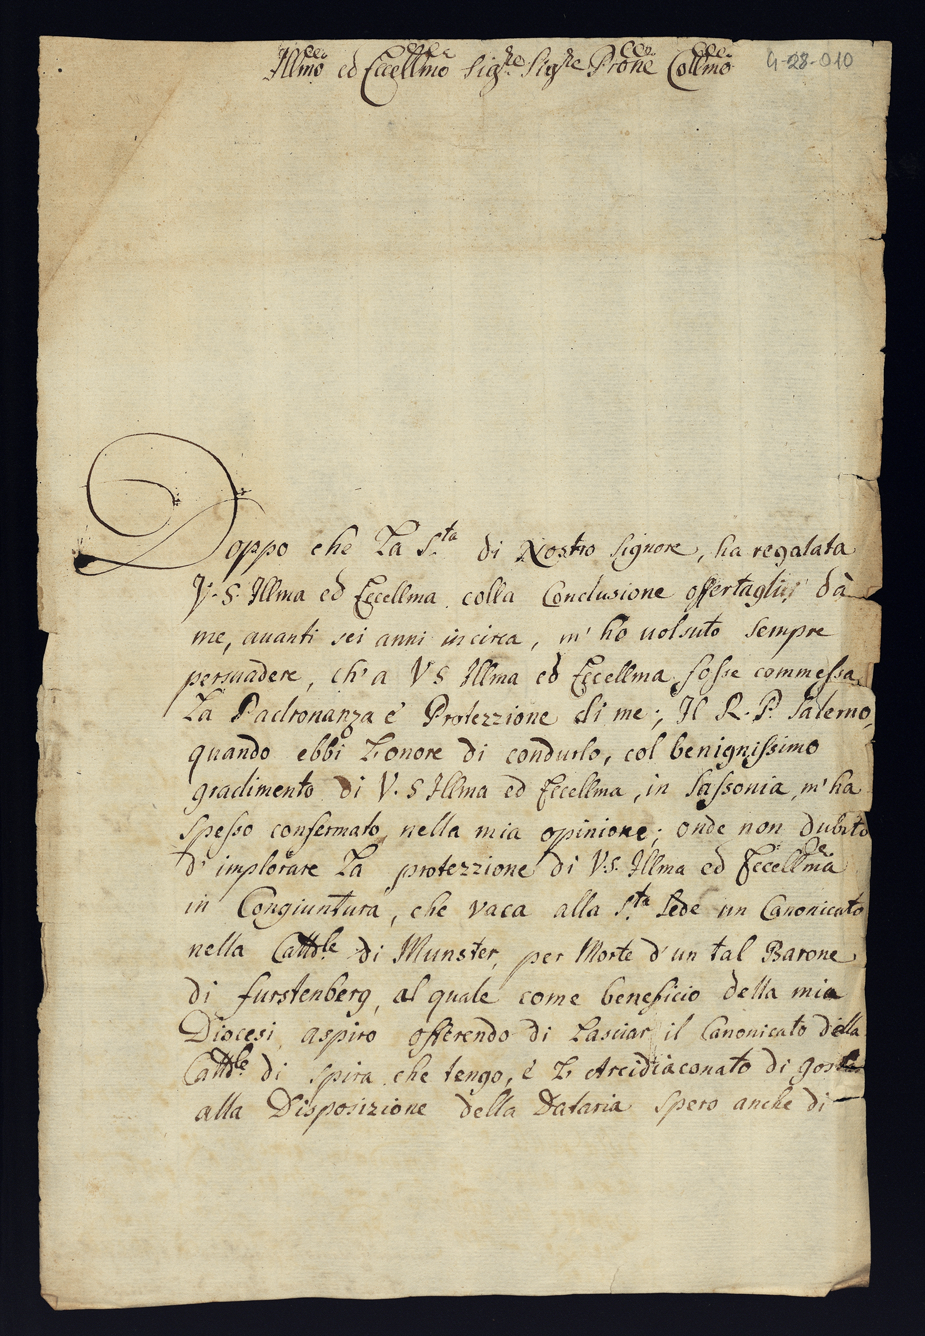 Illmo ed Eccellmo Sigre Sigre Prone Collmo
4-28-010
Doppo che La S.ta di Nostro Signore, ha regalata
V.S. Illma ed Eccellma colla Conclusione offertaglisi dà
me, avanti sei anni incirca, m'ho volsuto sempre
persuadere, ch'a V S Illma ed Eccellma fosse commessa
La Padronanza e' Protezzione di me; Il R. P. Salerno,
quando ebbi L'onore di condurlo, col benignissimo
gradimento di V. S Illma ed Eccellma, in Sassonia, m'ha
spesso confermato, nella mia opinione; onde non dubito
d'implorare La protezzione di V.S. Illma ed Eccellma
in Congiuntura, che vaca alla S.ta Sede un Canonicato
nella Cattdle di Munster, per Morte d'un tal Barone
di furstenberg, al quale come beneficio della mia
Diocesi aspiro offerendo di Lasciar il Canonicato della
Cattdle di Spira che tengo, e' L'Arcidiaconato di
alla Disposizione della Dataria spero anche di